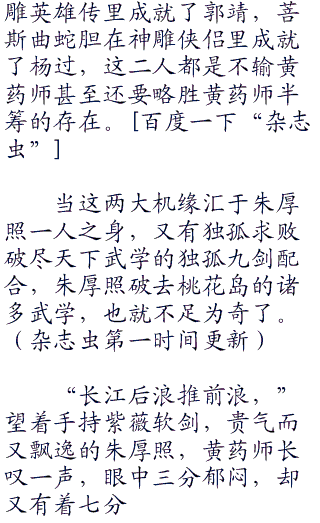 雕英雄传里成就了郭靖，菩
斯曲蛇胆在神雕侠侣里成就
了杨过，这二人都是不输黄
药师甚至还要略胜黄药师半
筹的存在。[百度一下“杂志
虫”]
当这两大机缘汇于朱厚
照一人之身，又有独孤求败
破尽天下武学的独孤九剑配
合，朱厚照破去桃花岛的诸
多武学，也就不足为奇了。
（杂志虫第一时间更新）
“长江后浪推前浪，”
望着手持紫薇软剑，贵气而
又飘逸的朱厚照，黄药师长
叹一声，眼中三分郁闷，却
又有着七分